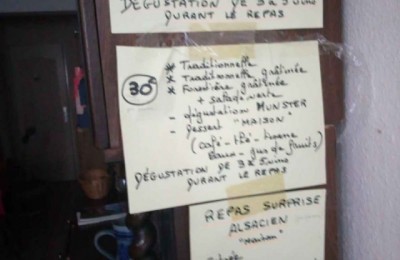 DÉGUSTATION DE 3 VINS
DURANT LE REPAS
* Traditionnelle
* Traditionnelle gratinée
30€
* Forestière gratinée
+ salade verte
- dégustation MUNSTER
- Dessert "MAISON"
(café - thé - tisane
Eaux - jus de fruits)
DÉGUSTATION DE 3 VINS
DURANT LE REPAS
REPAS SURPRISE
ALSACIEN
"Maison"